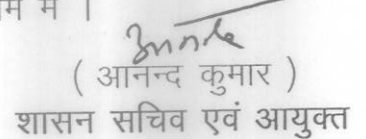 में ।
( आनन्द कुमार )
शासन सचिव एवं आयुक्त